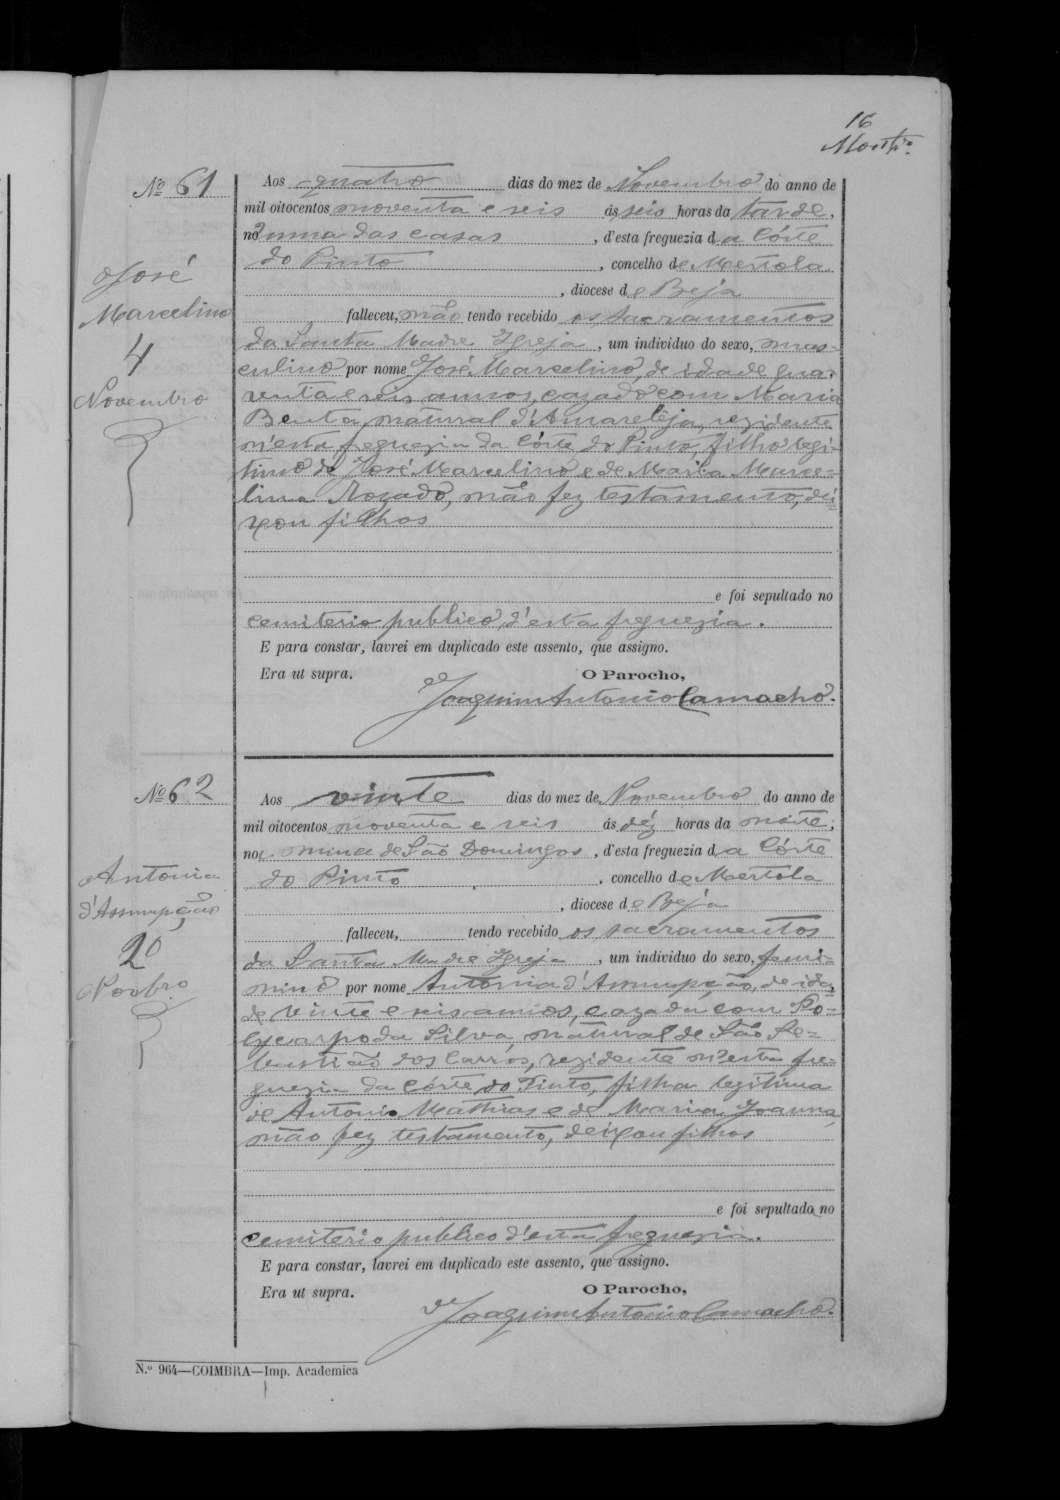 16
Nº 61
Aos quatro dias do mez de Novembro do anno de
mil oitocentos noventa e seis ás seis horas da tarde,
numa das casas, d'esta freguezia da Côrte
do Pinto, concelho de Mertola
, diocese de Beja
José
Marcelino
4
Novembro
falleceu, não tendo recebido os sacramentos
da Santa Madre Igreja, um individuo do sexo, mas-
culino por nome José Marcelino, de idade qua-
renta e seis annos, cazado com Maria
Benta, natural d'Amareleja, rezidente
n'esta freguezia da Côrte do Pinto, filho legi-
timo de José Marcelino e de Maria Marce-
lina Rozado, não fez testamento, dei-
xou filhos
e foi sepultado no
cemiterio publico, d'esta freguezia.
E para constar, lavrei em duplicado este assento, que assigno.
Era ut supra. O Parocho,
Joaquim Antonio Camacho.
Nº 62
Aos vinte dias do mez de Novembro do anno de
mil oitocentos noventa e seis ás déz horas da noite,
na mina de São Domingos, d'esta freguezia da Côrte
do Pinto, concelho de Mertola
, diocese de Beja
Antonia
d'Assumpção
20
Novbro
falleceu, tendo recebido os sacramentos
da Santa Madre Igreja, um individuo do sexo, femi-
nino por nome Antonia d'Assumpção, de ida-
de vinte e seis annos, cazada com Po-
lycarpo da Silva, natural de São Se-
bastião dos Carros, rezidente n'esta fre-
guezia da Côrte do Pinto, filha legitima
de Antonio Mathias e de Maria Joanna,
não fez testamento, deixou filhos
e foi sepultado no
cemiterio publico d'esta freguezia.
E para constar, lavrei em duplicado este assento, que assigno.
Era ut supra. O Parocho,
Joaquim Antonio Camacho.
N.º 964—COIMBRA—Imp. Academica